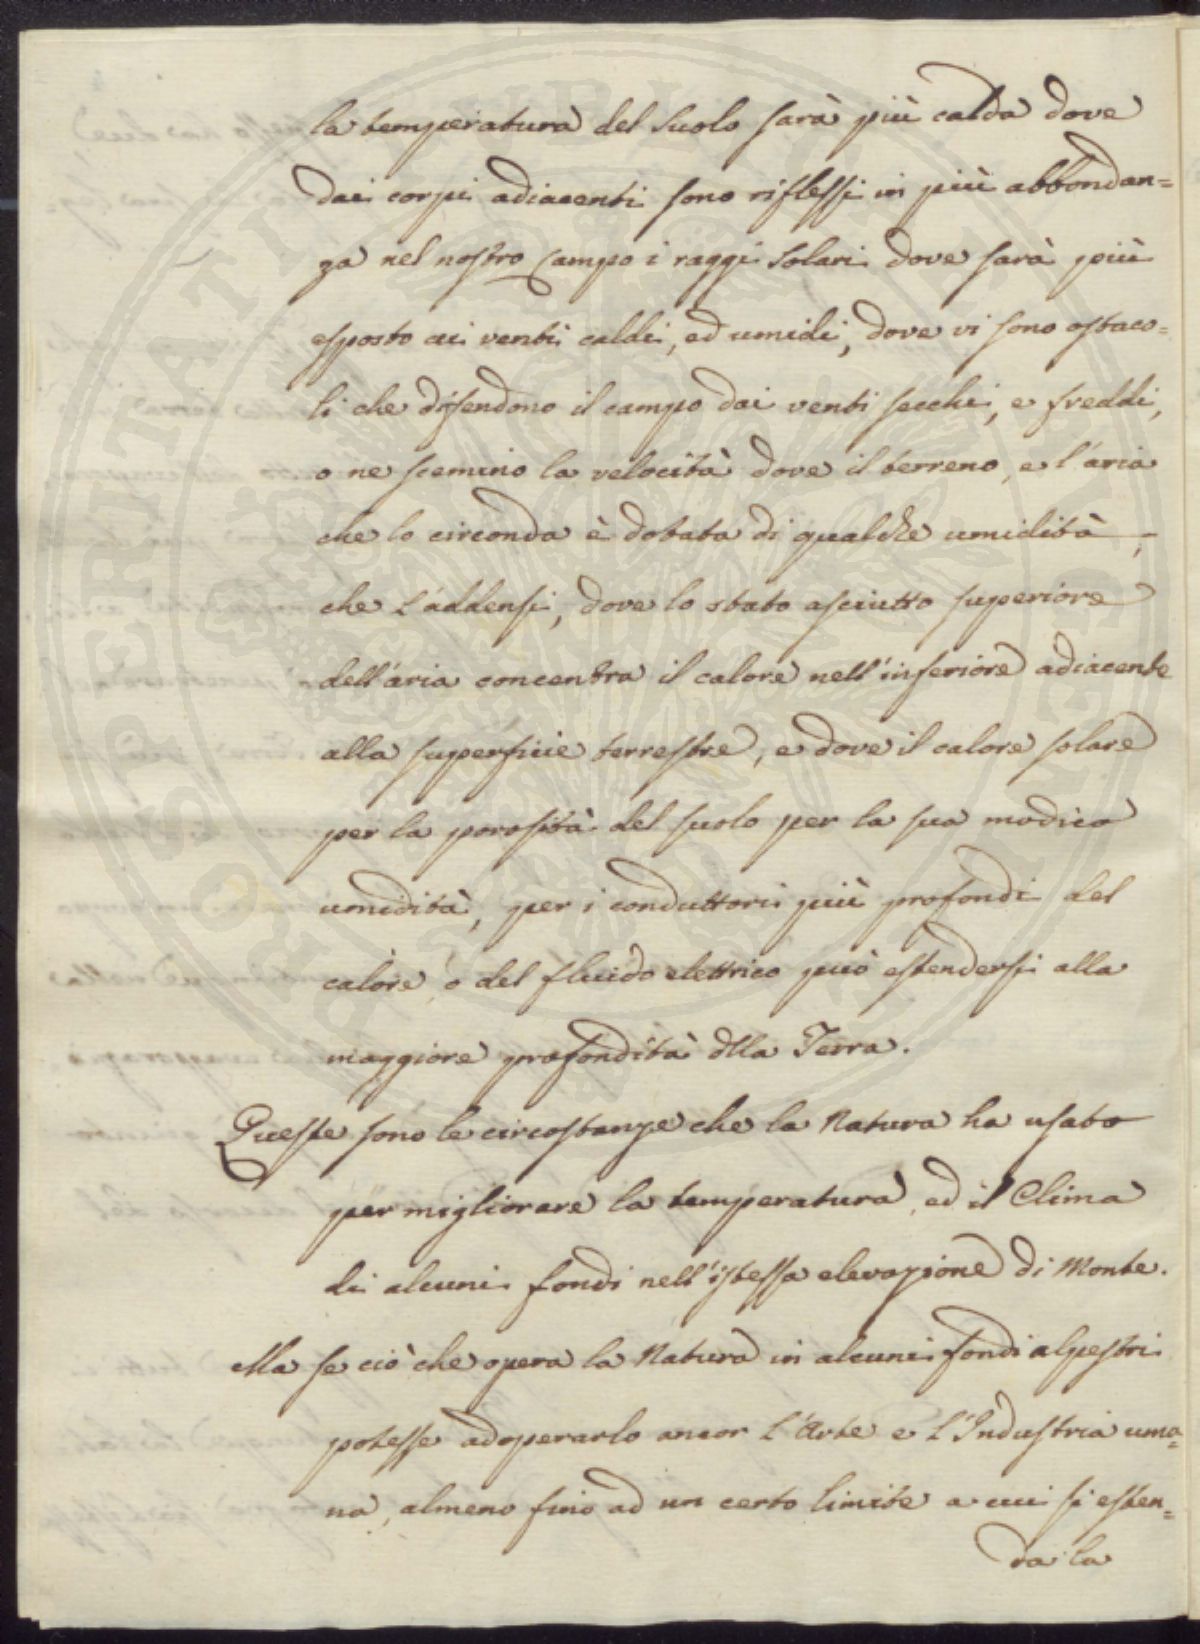 la temperatura del Suolo sarà più calda dove
dai corpi adiacenti sono riflessi in più abbondan=
za nel nostro Campo i raggi Solari dove sarà più
esposto ai venti caldi, ed umidi, dove vi sono ostaco=
li che difendono il campo dai venti secchi, e freddi,
o ne scemino la velocità dove il terreno, e l'aria
che lo circonda è dotata di qualche umidità,
che l'addensi, dove lo stato asciutto superiore
dell'aria concentra il calore nell'inferiore adiacente
alla superficie terrestre, e dove il calore solare
per la porosità del suolo per la sua modica
umidità, per i conduttori più profondi del
calore, o del fluido elettrico può estendersi alla
maggiore profondità dlla Terra.
Queste sono le circostanze che la Natura ha usato
per migliorare la temperatura, ed il Clima
di alcuni fondi nell'istessa elevazione di Monte.
Ma se ciò che opera la Natura in alcuni fondi alpestri
potesse adoperarlo ancor l'Arte e l'Industria uma=
na, almeno fino ad un certo limite a cui si esten=
da la
PROSPERITATI PUBLICAE AUGENDAE